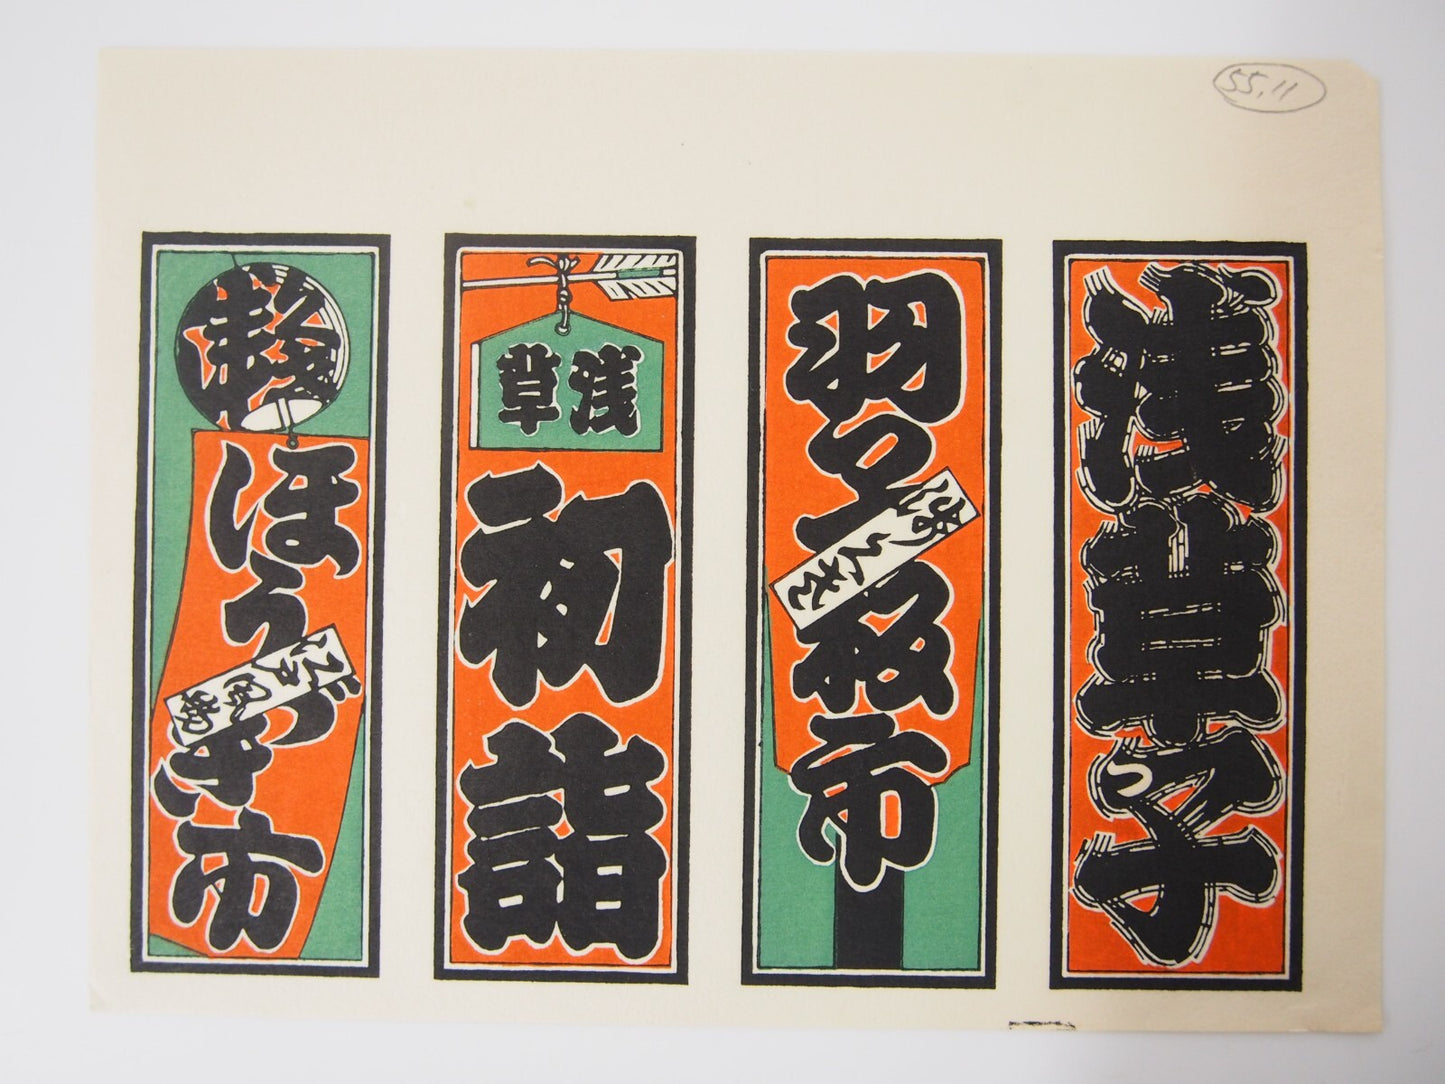 55.11
浅草っ子
羽子板市
浅草
初詣
ほうづき市